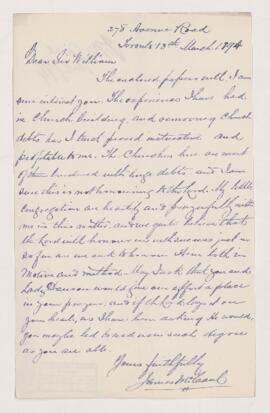 278 Avenue Road
Toronto 13th March 1894
Dear Sir William
The enclosed papers will I am
sure interest you. The experiences I have had
in Church building, and removing Church
debts has I trust proved instructive and
profitable to me. The Churches here are most
of them burdened with huge debts, and I am
sure this is not honouring to the Lord. My little
congregation are heartily and prayerfully with
me in this matter, and we quite believe that
the Lord will honour us with success just in
so far as we seek to honour Him both in
Motive and method. May I ask that you and
Lady Dawson would give our effort a place
in your prayers, and if the Lord lays it on
your hearts, as I have been asking He would,
you may be led to aid us in such degree
as you are able.
Yours faithfully
James